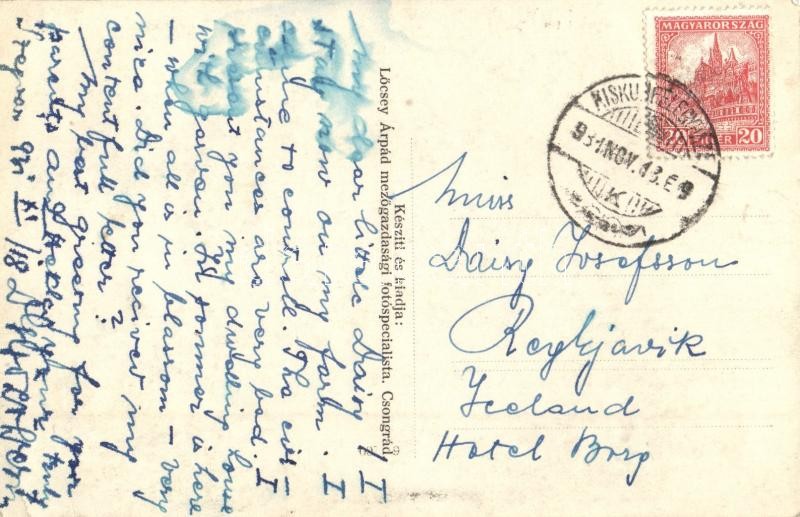 My dear little Daisy! I
study now on my farm. I
came to controll. The cir-
cumstances are very bad. I
present you my dwelling house
with garven. It sommer is here
– when all is in blossom – very
nice. Did you recived my
content full letter?
My best greeting for your
parents and
931 XI/18
Készíti és kiadja:
Lőcsey Árpád mezőgazdasági fotóspecialista. Csongrád
MAGYARORSZÁG
20 20
931 NOV. 18. E 9
K
Miss
Daisy Josefsson
Reykjavik
Iceland
Hotel Borg